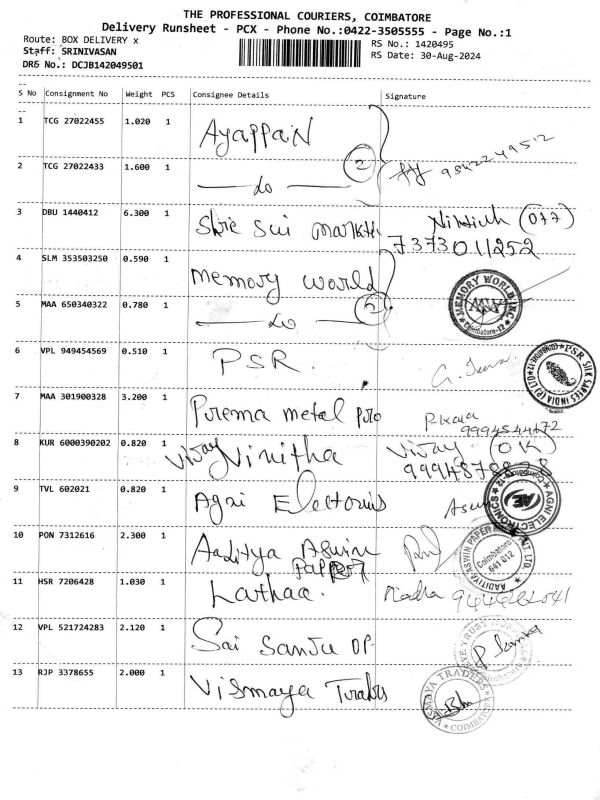 THE PROFESSIONAL COURIERS, COIMBATORE
Delivery Runsheet - PCX - Phone No.:0422-3505555 - Page No.:1
Route: BOX DELIVERY x
RS No.: 1420495
Staff: SRINIVASAN
RS Date: 30-Aug-2024
DRS No.: DCJB142049501
S No Consignment No Weight PCS Consignee Details Signature
1 TCG 27022455 1.020 1 Ayappan
2 TCG 27022433 1.600 1 do 2 9842249512
3 DBU 1440412 6.300 1 Shre Sui
7373011252
4 SLM 353503250 0.590 1 memory world
MEMORY WORLD INC
Coimbatore-12
5 MAA 650340322 0.780 1 do 2
6 VPL 949454569 0.510 1 PSR.
PSR SILK SAREES INDIA (P) LTD COIMBATORE-12
7 MAA 301900328 3.200 1 metal
8 KUR 6000390202 0.820 1 Vijay Vinitha Vijay (OK)
9 TVL 602021 0.820 1 Agni
AGNI ELECTRONICS Coimbatore-12 AE
10 PON 7312616 2.300 1 Aaditya Aswin
AADITYA ASWIN PAPER LTD.
Coimbatore
641 012
11 HSR 7206428 1.030 1
12 VPL 521724283 2.120 1 Sai
13 RJP 3378655 2.000 1 Vismaya
VISMAYA TRADERS
COIMBATORE